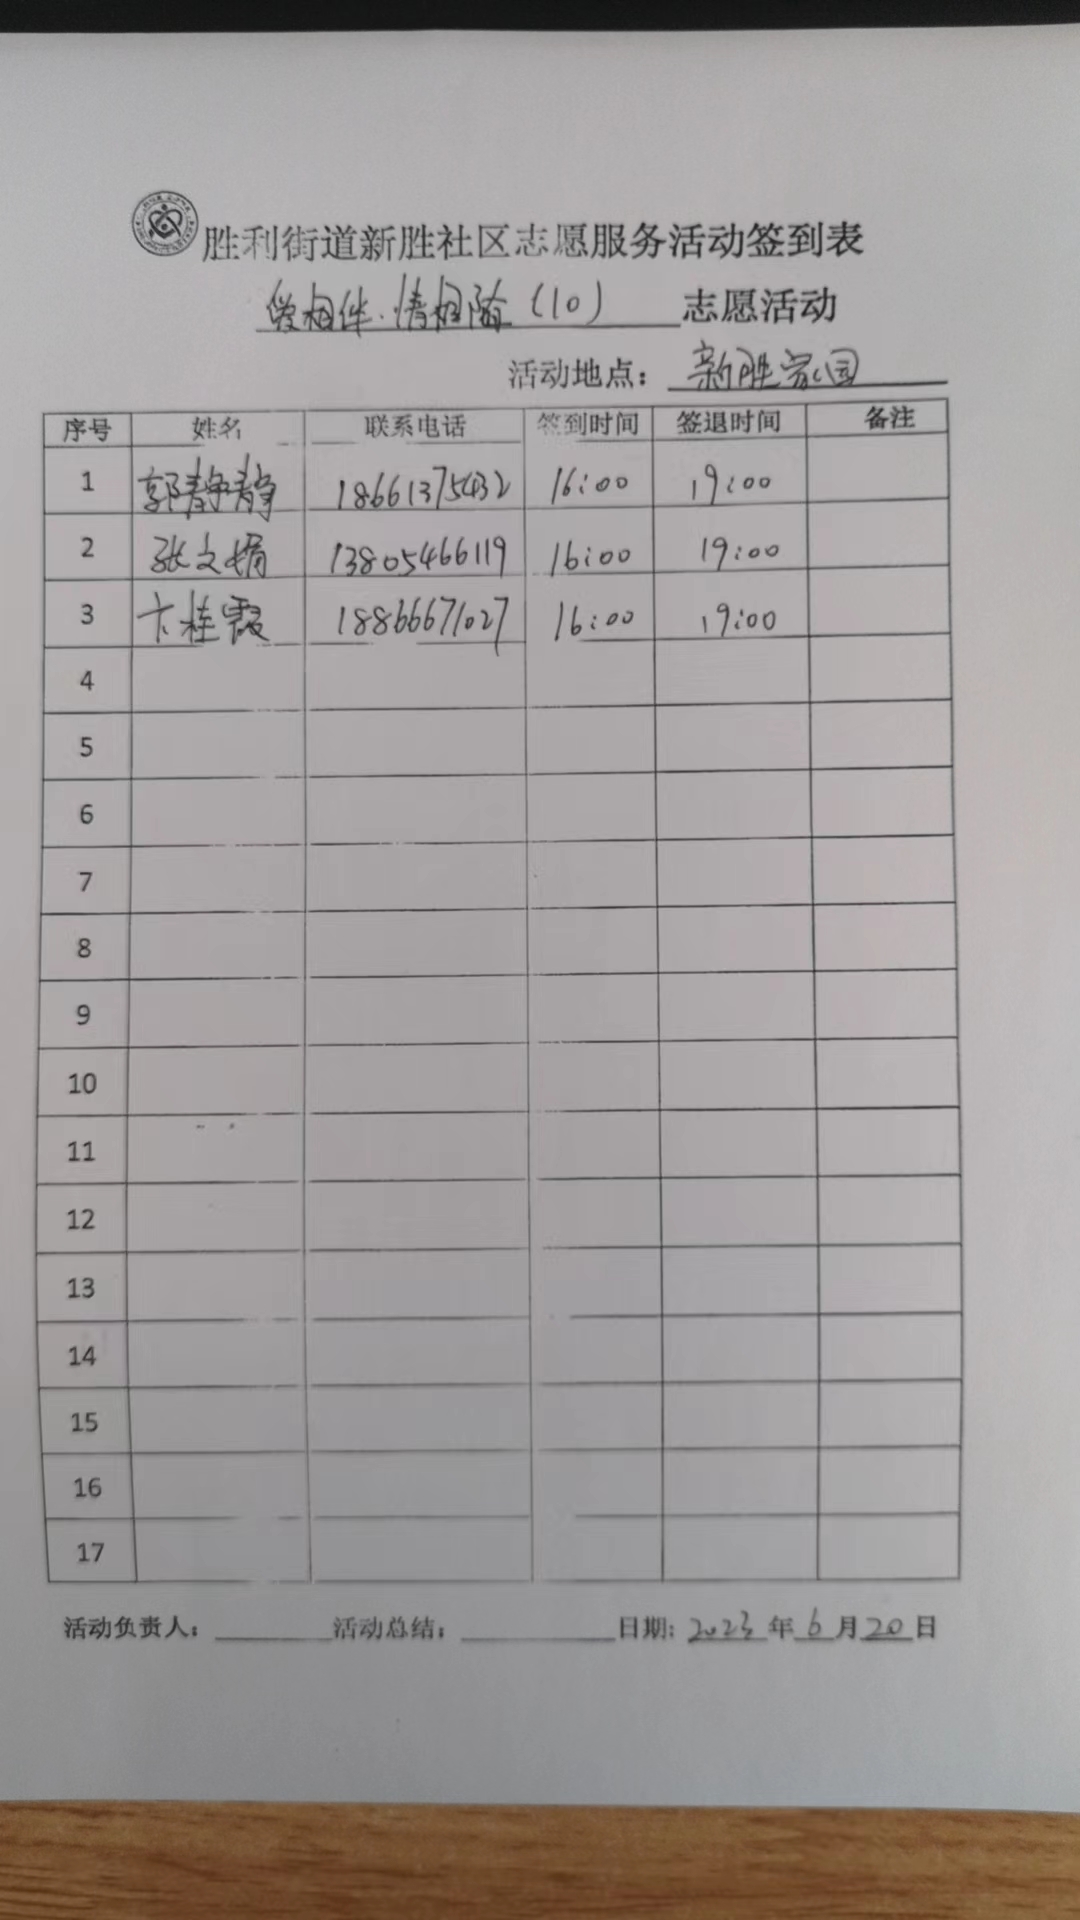 胜利街道新胜社区志愿服务活动签到表
爱相伴.情相随(10) 志愿活动
活动地点: 新胜家园
序号 姓名 联系电话 签到时间 签退时间 备注
1 郭静静 18661375432 16:00 19:00
2 张文娟 13805466119 16:00 19:00
3 卞桂霞 18866671027 16:00 19:00
4
5
6
7
8
9
10
11
12
13
14
15
16
17
活动负责人: 活动总结: 日期: 2023年6月20日